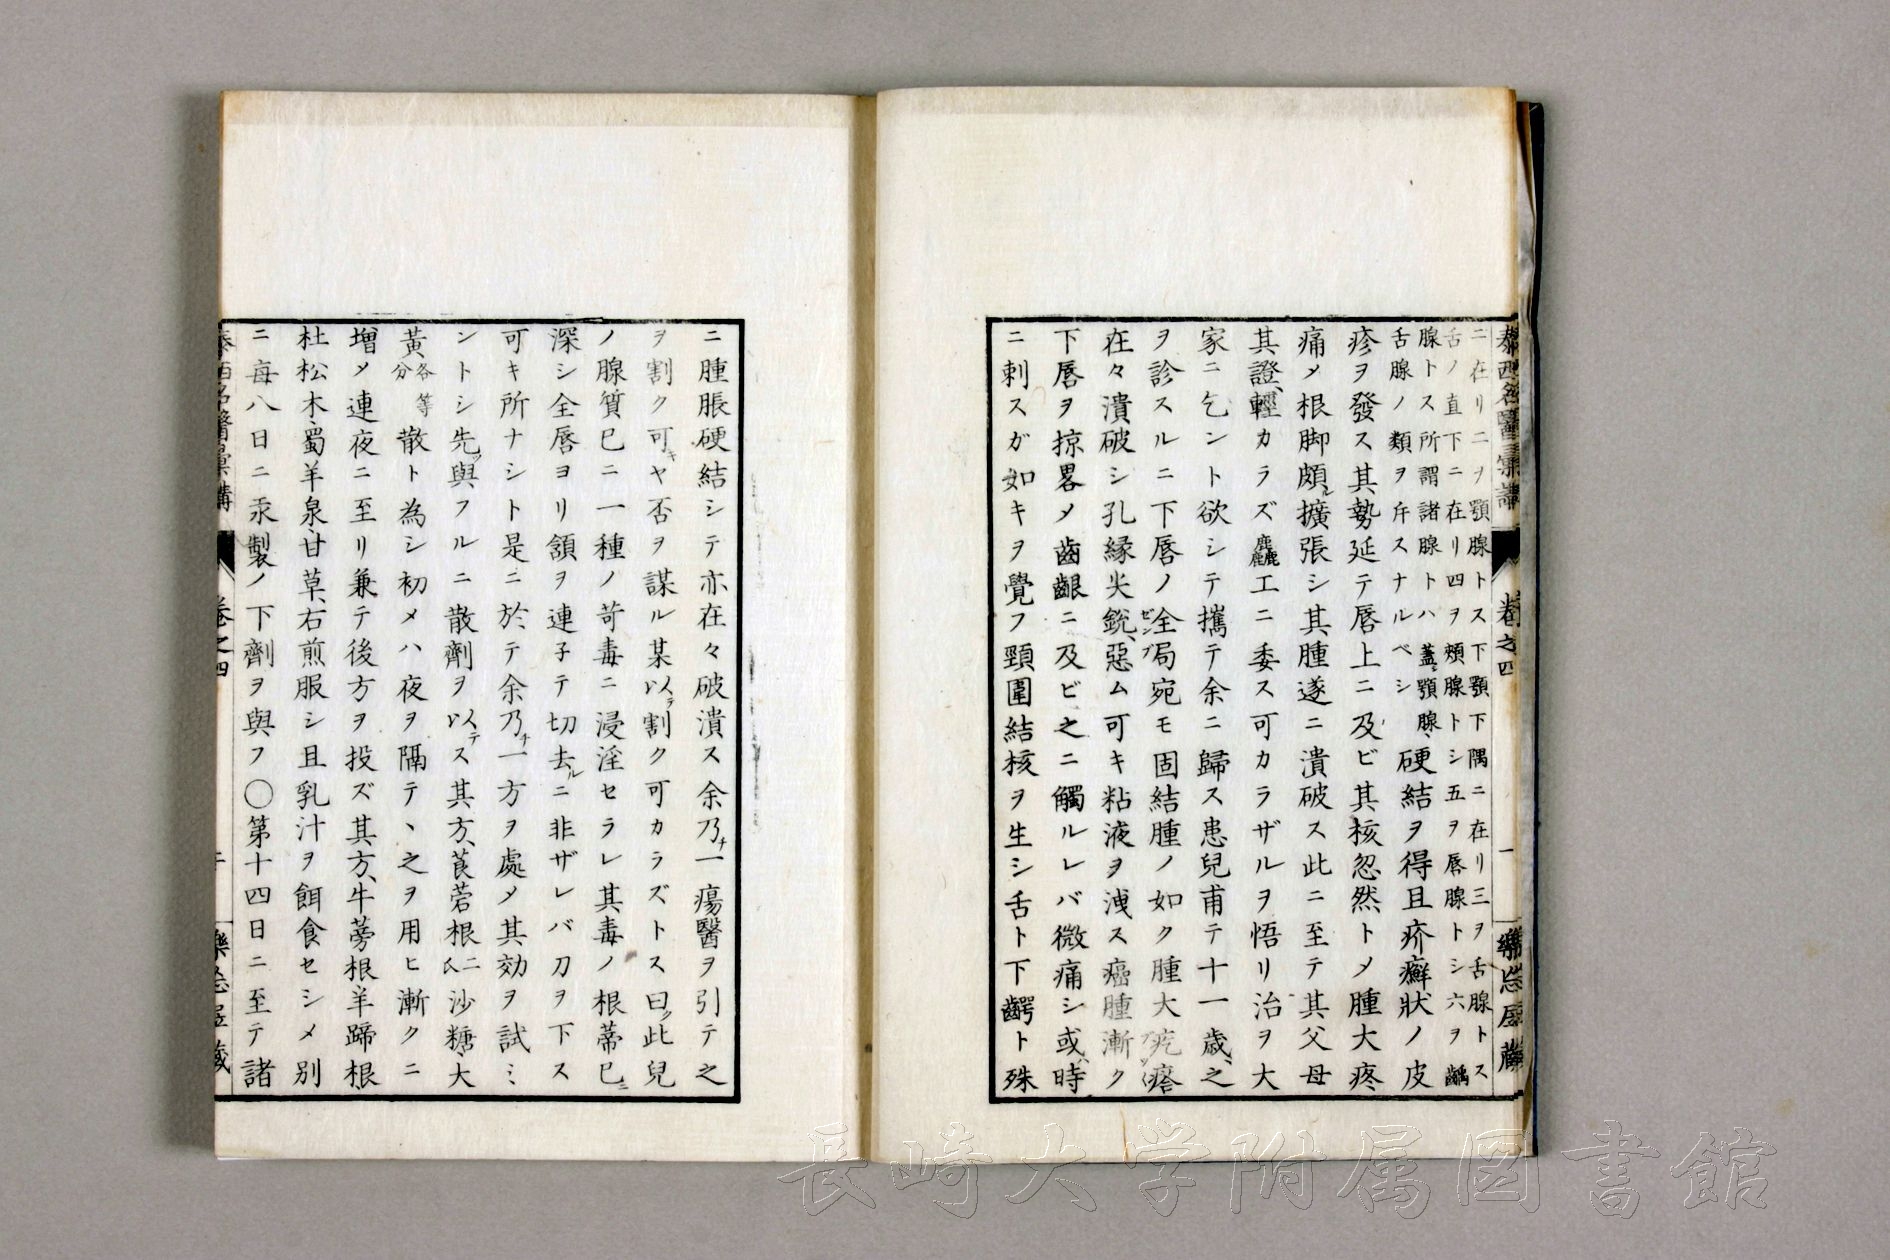 ニ在リ二ヲ顎腺トス下顎下隅ニ在リ三ヲ舌腺トス
舌ノ直下ニ在リ四ヲ頰腺トシ五ヲ唇腺トシ六ヲ齲
腺トス所謂諸腺トハ蓋顎腺、
舌腺ノ類ヲ斥スナルベシ
硬結ヲ得且疥癬狀ノ皮
疹ヲ發ス其勢延テ唇上ニ及ビ其核忽然トメ腫大疼
痛メ根脚頗ル擴張シ其腫遂ニ潰破ス此ニ至テ其父母
其證、輕カラズ麤工ニ委ス可カラザルヲ悟リ治ヲ大
家ニ乞ント欲シテ攜テ余ニ歸ス患兒甫テ十一歳、之
ヲ診スルニ下唇ノ全局宛モ固結腫ノ如ク腫大疙瘩
在々潰破シ孔緣尖銳、惡ム可キ粘液ヲ洩ス癌腫漸ク
下唇ヲ掠畧メ齒齦ニ及ビ之ニ觸ルレバ微痛シ或ハ時
ニ刺スガ如キヲ覺フ頸圍結核ヲ生シ舌ト下齶ト殊
ニ腫脹硬結シテ亦在々破潰ス余乃チ一瘍醫ヲ引テ之
ヲ割ク可キヤ否ヲ謀ル某以ラク割ク可カラズトス曰ク此兒
ノ腺質已ニ一種ノ苛毒ニ浸淫セラレ其毒ノ根蒂已ニ
深シ全唇ヨリ頷ヲ連子テ切去ルニ非ザレバ刀ヲ下ス
可キ所ナシト是ニ於テ余乃チ一方ヲ處メ其効ヲ試ミ
ントシ先ヅ與フルニ散劑ヲ以テス其方、莨菪根二氏沙糖、大
黃各等分散ト為シ初メハ夜ヲ隔テヽ之ヲ用ヒ漸クニ
增メ連夜ニ至リ兼テ後方ヲ投ズ其方、牛蒡根、羊蹄根
杜松木、蜀羊泉、甘草、右煎服シ且乳汁ヲ餌食セシメ別
ニ每八日ニ汞製ノ下劑ヲ與フ〇第十四日ニ至テ諸
泰西名醫彙講
卷之四
一
長崎大学附属図書館